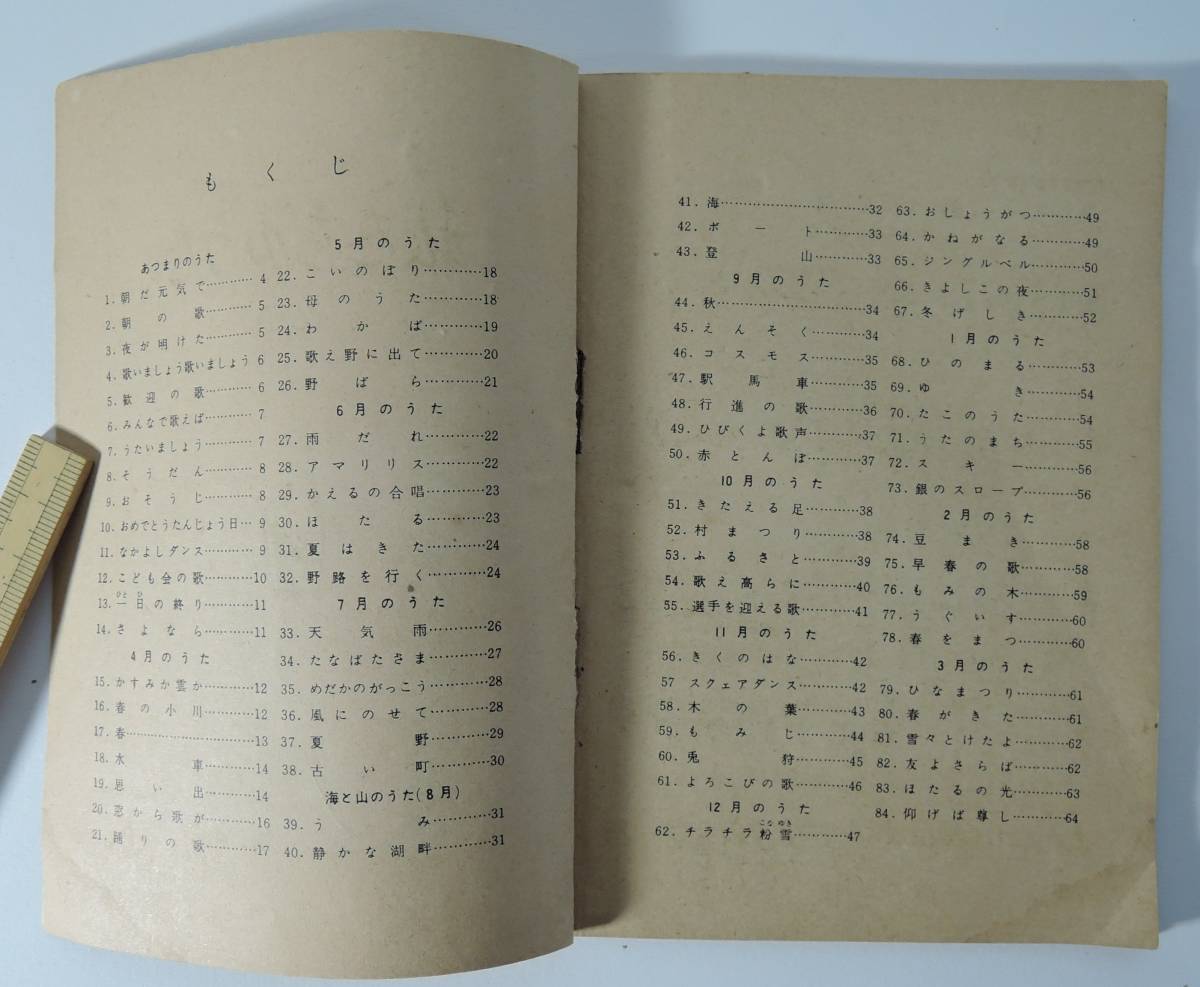 もくじ
あつまりのうた
1. 朝だ元気で…………4
2. 朝の歌…………5
3. 夜が明けた…………5
4. 歌いましょう歌いましょう 6
5. 歓迎の歌…………6
6. みんなで歌えば…………7
7. うたいましょう…………7
8. そうだん…………8
9. おそうじ…………8
10. おめでとうたんじょう日…9
11. なかよしダンス…………9
12. こども会の歌…………10
13. 一日の終り…………11
ひと ひ
14. さよなら…………11
4月のうた
15. かすみか雲か…………12
16. 春の小川…………12
17. 春…………13
18. 水車…………14
19. 思い出…………14
20. 窓から歌が…………16
21. 踊りの歌…………17
5月のうた
22. こいのぼり…………18
23. 母のうた…………18
24. わかば…………19
25. 歌え野に出て…………20
26. 野ばら…………21
6月のうた
27. 雨だれ…………22
28. アマリリス…………22
29. かえるの合唱…………23
30. ほたる…………23
31. 夏はきた…………24
32. 野路を行く…………24
7月のうた
33. 天気雨…………26
34. たなばたさま…………27
35. めだかのがっこう…………28
36. 風にのせて…………28
37. 夏野…………29
38. 古い町…………30
海と山のうた(8月)
39. うみ…………31
40. 静かな湖畔…………31
41. 海…………32
42. ボート…………33
43. 登山…………33
9月のうた
44. 秋…………34
45. えんそく…………34
46. コスモス…………35
47. 駅馬車…………35
48. 行進の歌…………36
49. ひびくよ歌声…………37
50. 赤とんぼ…………37
10月のうた
51. きたえる足…………38
52. 村まつり…………38
53. ふるさと…………39
54. 歌え高らに…………40
55. 選手を迎える歌…………41
11月のうた
56. きくのはな…………42
57 スクェアダンス…………42
58. 木の葉…………43
59. もみじ…………44
60. 兎狩…………45
61. よろこびの歌…………46
12月のうた
こなゆき
62. チラチラ粉雪…………47
63. おしょうがつ…………49
64. かねがなる…………49
65. ジングルベル…………50
66. きよしこの夜…………51
67. 冬げしき…………52
1月のうた
68. ひのまる…………53
69. ゆき…………54
70. たこのうた…………54
71. うたのまち…………55
72. スキー…………56
73. 銀のスロープ…………56
2月のうた
74. 豆まき…………58
75. 早春の歌…………58
76. もみの木…………59
77. うぐいす…………60
78. 春をまつ…………60
3月のうた
79. ひなまつり…………61
80. 春がきた…………61
81. 雪々とけたよ…………62
82. 友よさらば…………62
83. ほたるの光…………63
84. 仰げば尊し…………64